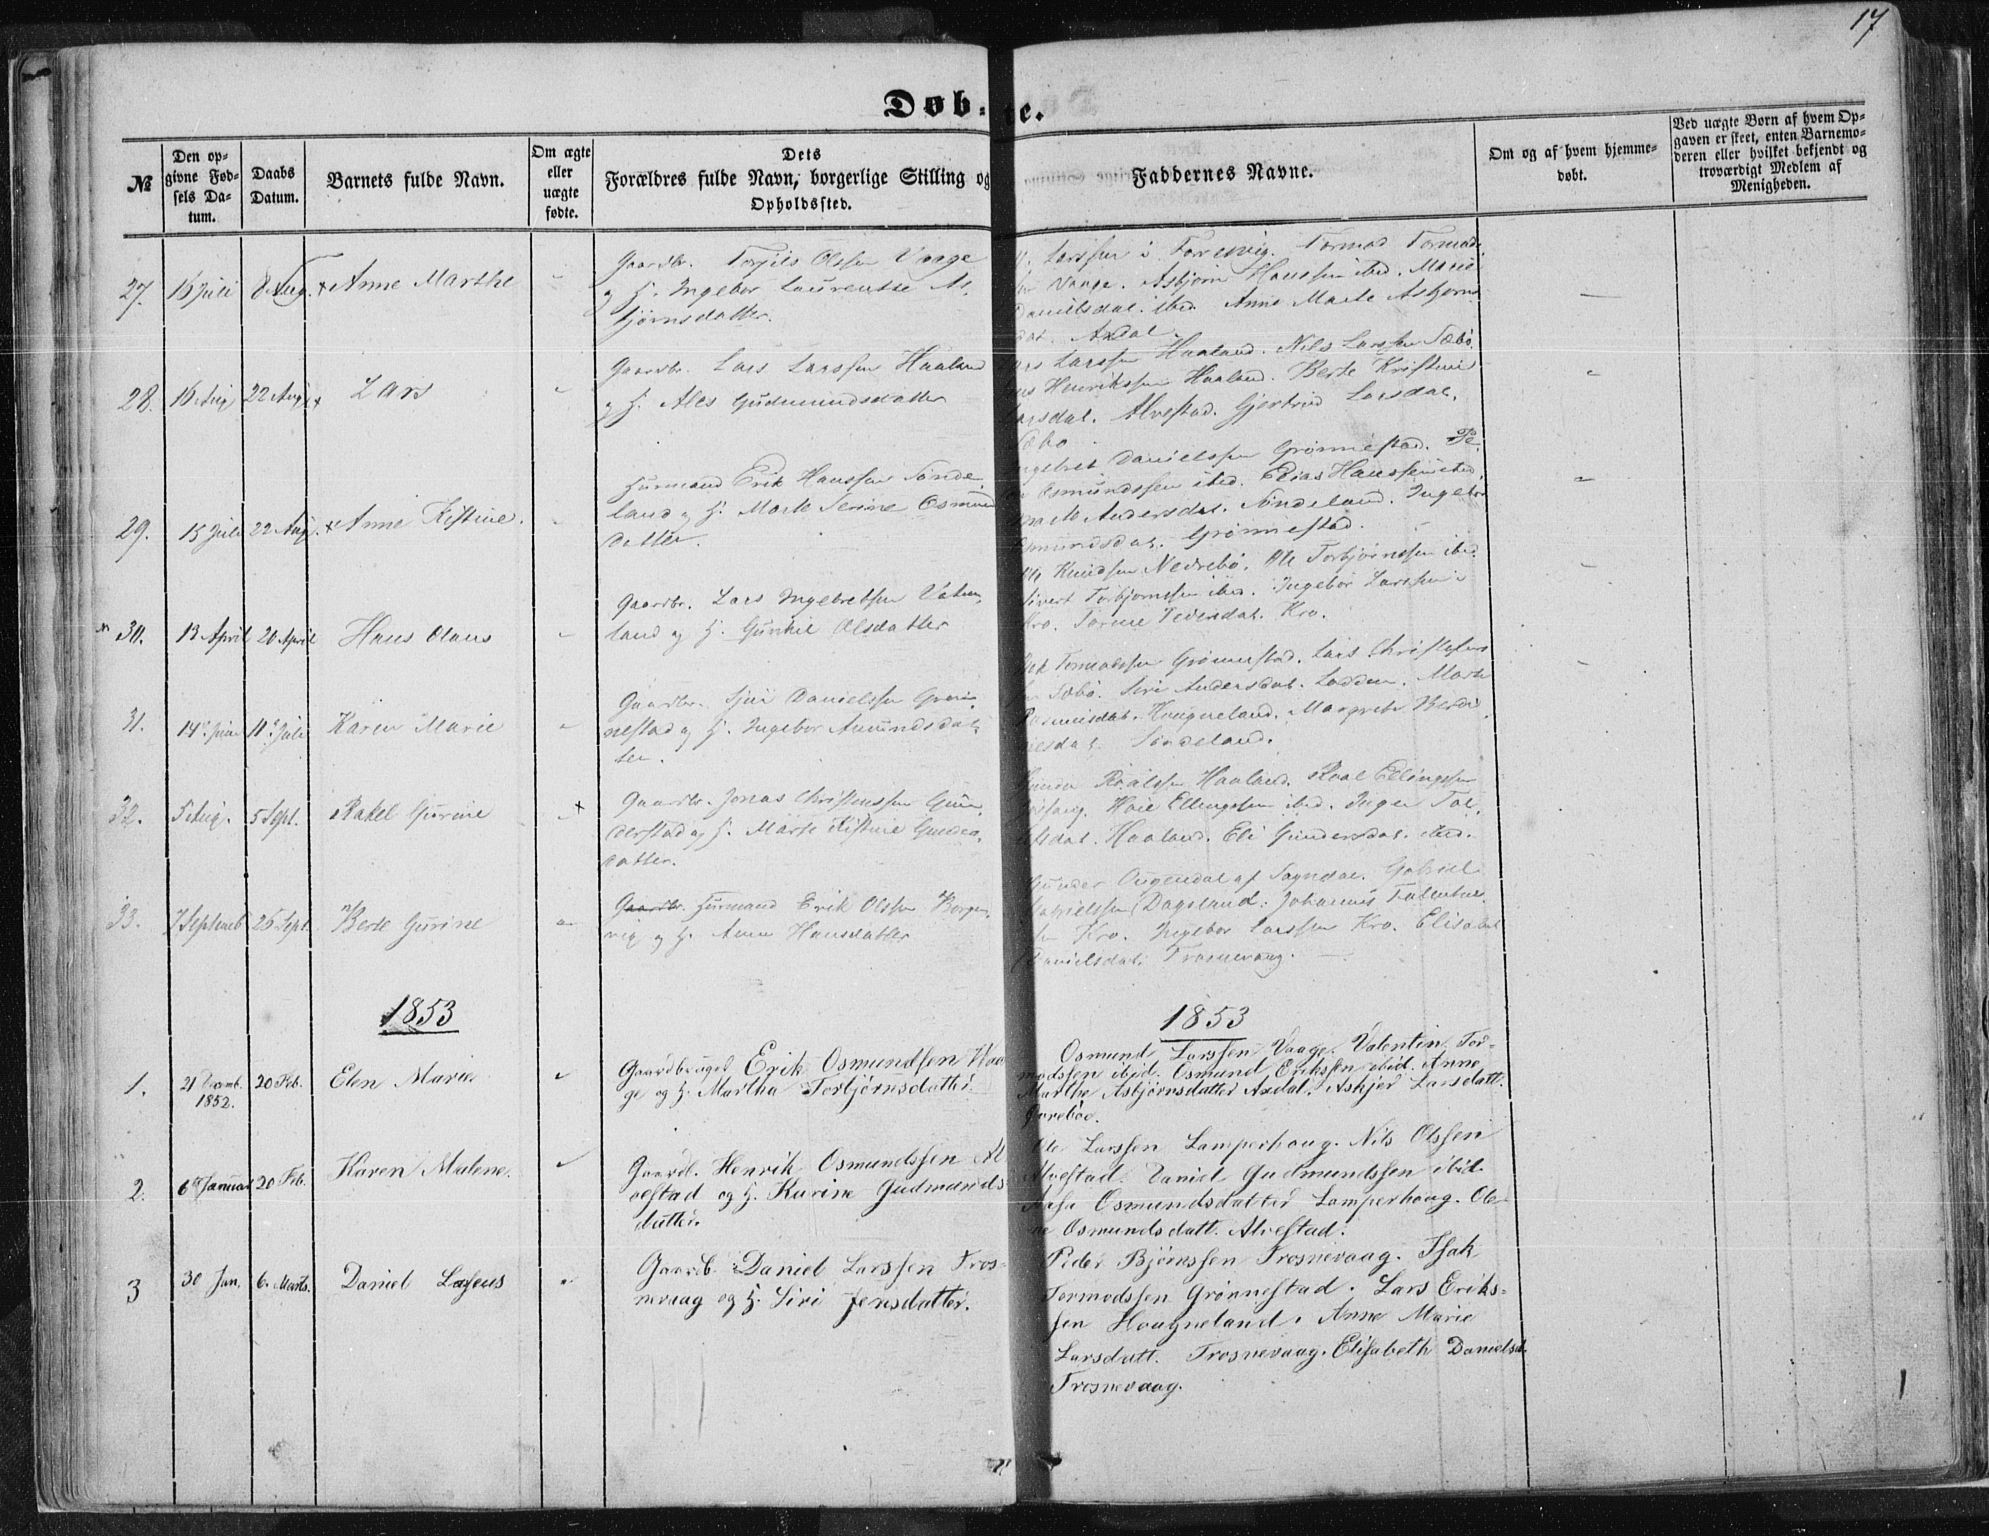 17
Døb- te.
№
Den op-
givne Fød-
sels Da-
tum.
Daabs
Datum.
Barnets fulde Navn.
Om ægte
eller
uægte
fødte.
Dets
Forældres fulde Navn, borgerlige Stilling og
Opholdssted.
Faddernes Navne.
Om og af hvem hjemme-
døbt.
Ved uægte Børn af hvem Op-
gaven er skeet, enten Barnemo-
deren eller hvilket bekjendt og
troværdigt Medlem af
Menigheden.
27. 16 Juli 8 Aug. Anne Marthe
Gaardbr. Torjils Olssen Vaage
og H. Ingebor Laurentse As-
bjørnsdatter.
Larssen i Foresvig. Tormod Tormod-
Vaage. Asbjørn Hanssen ibid. Marie
Danielsdat. ibid. Anne Marte Asbjørns
dat. Axdal.
28. 16 Aug 22 Aug Lars
Gaardbr. Lars Larssen Haaland
og H. Ales Gudmundsdatter
Larssen Haaland. Nils Larssen Sæbø.
Henrikssen Haaland. Berte Kristine
Larsdat. Alvestad. Gjertrud Larsdat.
Sæbø
29. 15 Juli 22 Aug. Anne Kistine.
Huusmand Erik Hanssen Sønde-
land og H. Marte Serine Osmund
datter.
Ingebret Danielssen Grønnestad. Pe
Osmundssen ibid. Elias Hanssen ibid
Andersdat. Søndeland. Ingebor
Osmundsdat. Grønnestad.
30. 13 April 20 April Hans Olaus
Gaardbr. Lars Ingebretsen Vatne-
land og H. Gunhil Olsdatter
Knudsen Nedrebø. Ole Torbjørnssen ibid.
Sivert Torbjørnssen ibid. Ingebor Larssen
Kro. Torine Pedersdat. Kro.
31. 14de Juni 11te Juli Karen Marie
Gaardbr. Sjur Danielssen Grøn-
nestad og H. Ingebor Amundsdat-
ter.
Isak Tormodssen Grønnestad. Lars Christofers
Sæbø. Siri Andersdat. Lodden. Marte
Rasmusdat. Hougneland. Margrete Berdi-
nesdat. Søndeland.
32. 5 Aug. 5 Sept. Rakel Gurine
Gaardbr. Jonas Christenssen Gun-
derstad og H. Marte Kistine Gunder-
datter.
Gunder Roalssen Haaland. Roal Ellingssen
Ellingssen ibid. Inger Tol-
lefsdat. Haaland. Eli Gundersdat. ibid.
33. 7 Septemb 26 Sept. Berte Gurine
Gaardbr. Huusmand Erik Olssen Borgen-
vig og H. Anne Hansdatter
Gunder Ougendal af Sogndal. Gabriel
Gabrielssen Dagsland. Johannes
Kro. Ingebor Larssen Kro. Elisabet
Danielsdat. Trosnevaag.
1853
1853
1. 21 Decemb. 1852. 20 Feb. Elen Marie
Gaardbruger Erik Osmundsen Vaa-
ge og H. Martha Torbjørnsdatter.
Osmund Larssen Vaage. Valentin Tor-
modssen ibid. Osmund Erikssen ibid. Anne
Marthe Asbjørnsdatter Axdal. Askjer Larsdatt.
Gorebøe.
2. 6te Januar 20 Feb. Karen Malene.
Gaardb. Henrik Osmundssen Al-
vestad og H. Karine Gudmunds
datter.
Ole Larssen Lamperhoug. Nils Olssen
Alvestad. Daniel Gudmundssen ibid.
Aasa Osmundsdatter Lamperhoug. Ole-
ne Osmundsdatt. Alvestad.
3 30 Jan. 6. Marts. Daniel Laseus
Gaardb. Daniel Larssen Tros-
nevaag og H. Siri Jensdatter.
Peder Bjørnssen Trosnevaag. Isak
Tormodssen Grønnestad. Lars Eriks-
sen Hougneland. Anne Marie
Larsdatt. Trosnevaag. Elisabeth Danielsd.
Trosnevaag.